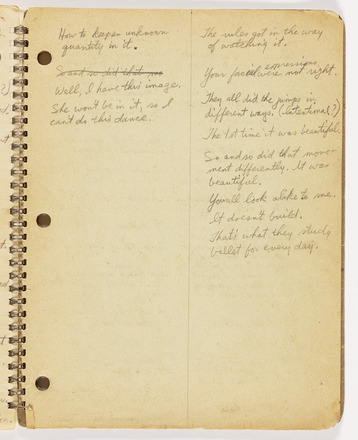 How to keep an unknown
quantity in it.
So and so did that mo
Well, I have this image.
She won't be in it, so I
can't do this dance.
The rules got in the way
of watching it.
Your facial expressions
were not right.
They all did the jumps in
different ways. (Intentional?)
The 1st time it was beautiful.
So and so did that move-
ment differently. It was
beautiful.
You all look alike to me.
It doesn't build.
That's what they study
ballet for every day.